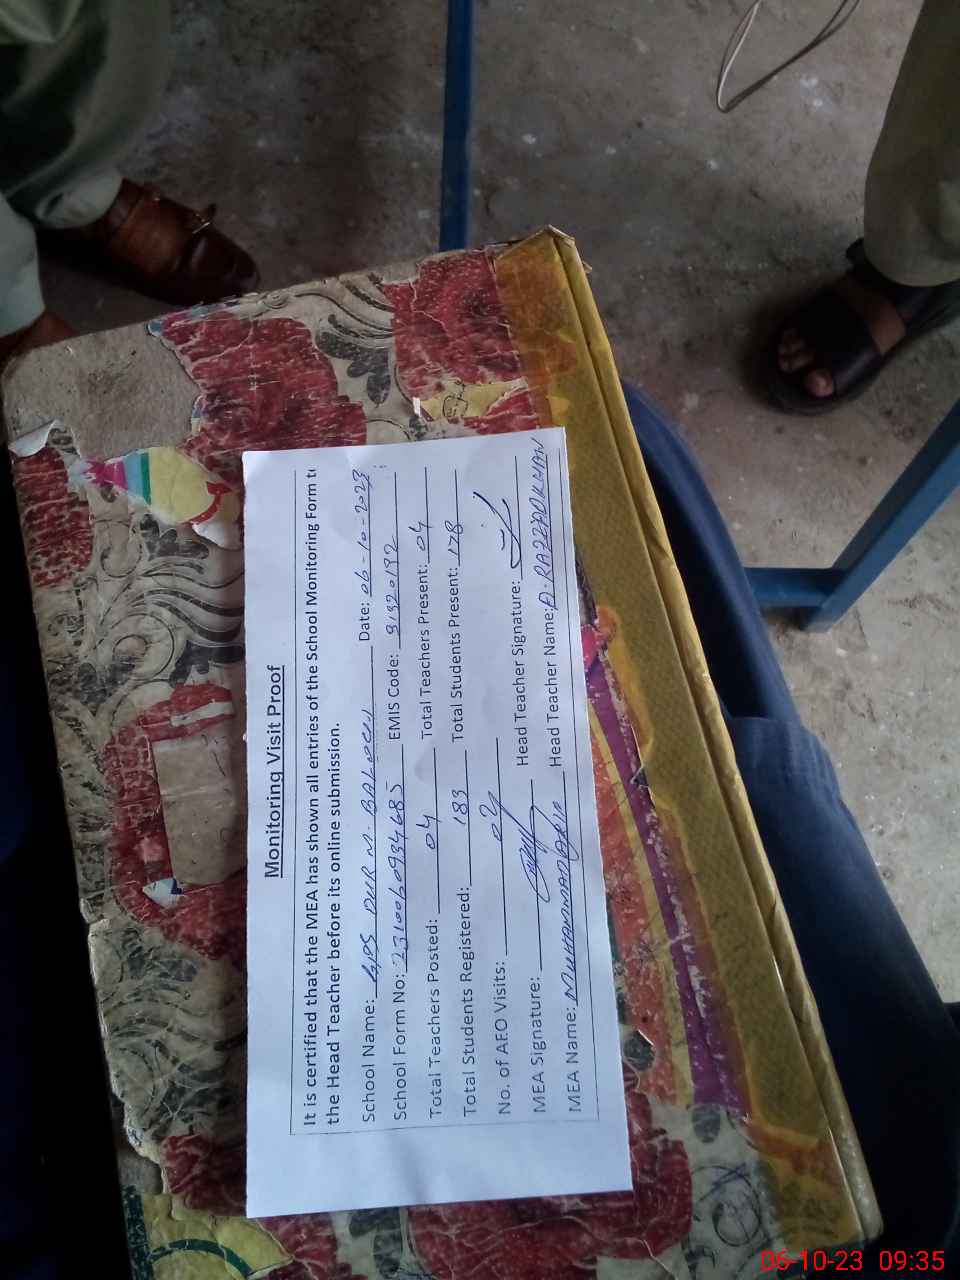 Monitoring Visit Proof
It is certified that the MEA has shown all entries of the School Monitoring Form to
the Head Teacher before its online submission.
School Name: GPS DUR M. BALOCH Date: 06-10-2023
School Form No: 2310060934685 EMIS Code: 31320192
Total Teachers Posted: 04 Total Teachers Present: 04
Total Students Registered: 183 Total Students Present: 178
No. of AEO Visits: 02
MEA Signature: Head Teacher Signature:
MEA Name: MUHAMMAD Head Teacher Name: A. RAZZAQ KHAN
06-10-23 09:35